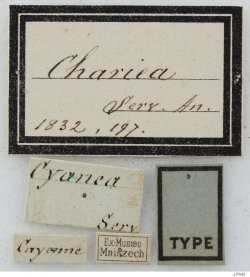 Chariea
Serv. An.
1832, 197.
Cyanea
Serv.
Cayenne
Ex-Musæo
Mniszech
TYPE